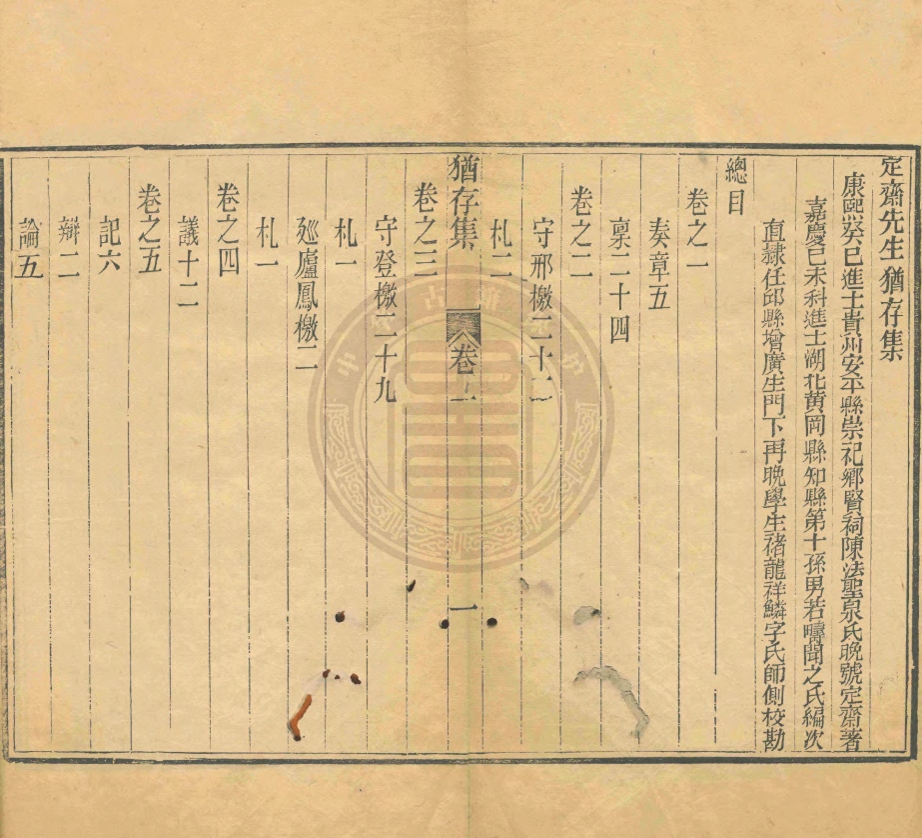 定齋先生猶存集
康熙癸巳進士貴州安平縣崇祀鄉賢祠陳法聖泉氏晚號定齋著
嘉慶己未科進士湖北黄岡縣知縣第十孫男若疇聞之氏編次
直隷任邱縣增廣生門下再晚學生禇龍祥鱗字氏師側校勘
總目
卷之一
奏章五
稟二十四
卷之二
守邢檄二十二
札二
猶存集 卷一 一
卷之三
守登檄二十九
札一
廵廬鳳檄二
札一
卷之四
議十二
卷之五
記六
辯二
論五